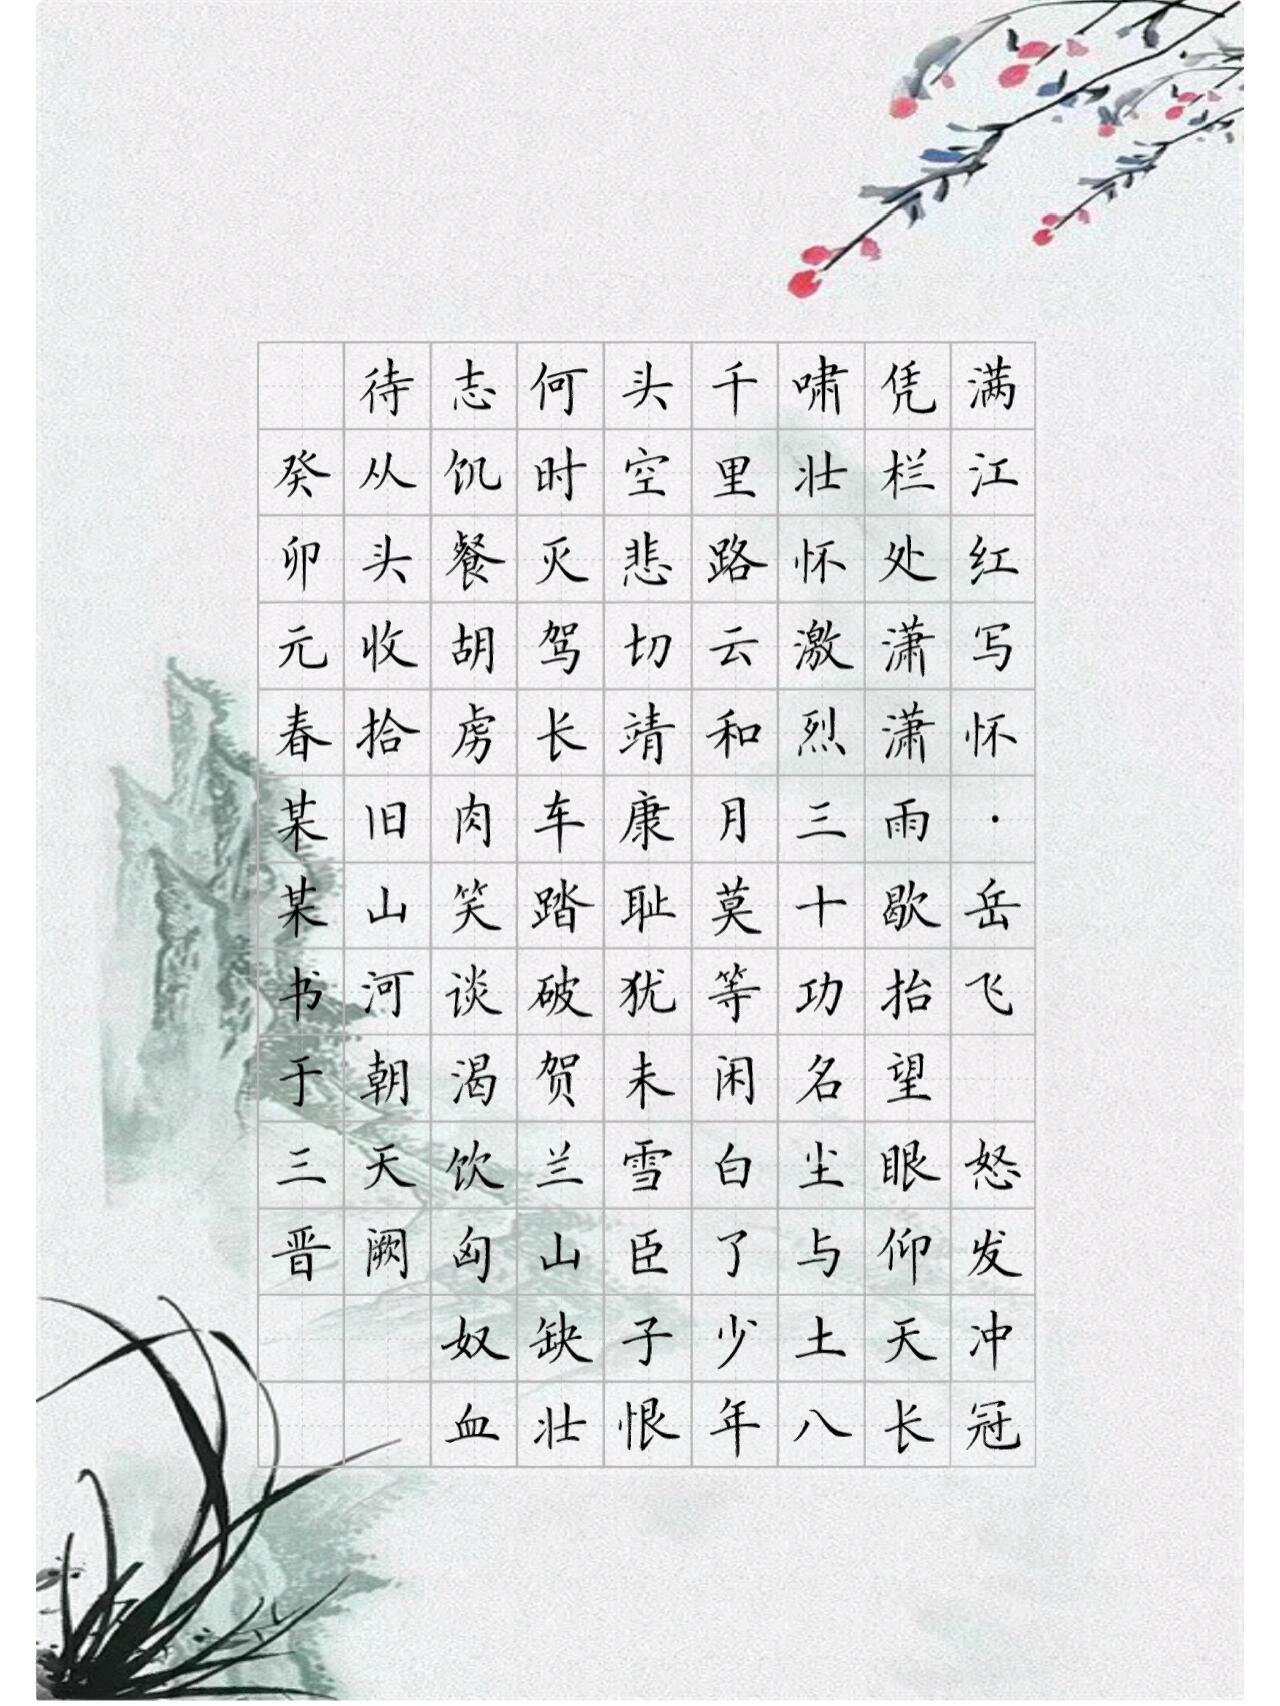 满江红写怀·岳飞 怒发冲冠
凭栏处潇潇雨歇抬望眼仰天长
啸壮怀激烈三十功名尘与土八
千里路云和月莫等闲白了少年
头空悲切靖康耻犹未雪臣子恨
何时灭驾长车踏破贺兰山缺壮
志饥餐胡虏肉笑谈渴饮匈奴血
待从头收拾旧山河朝天阙
癸卯元春某某书于三晋